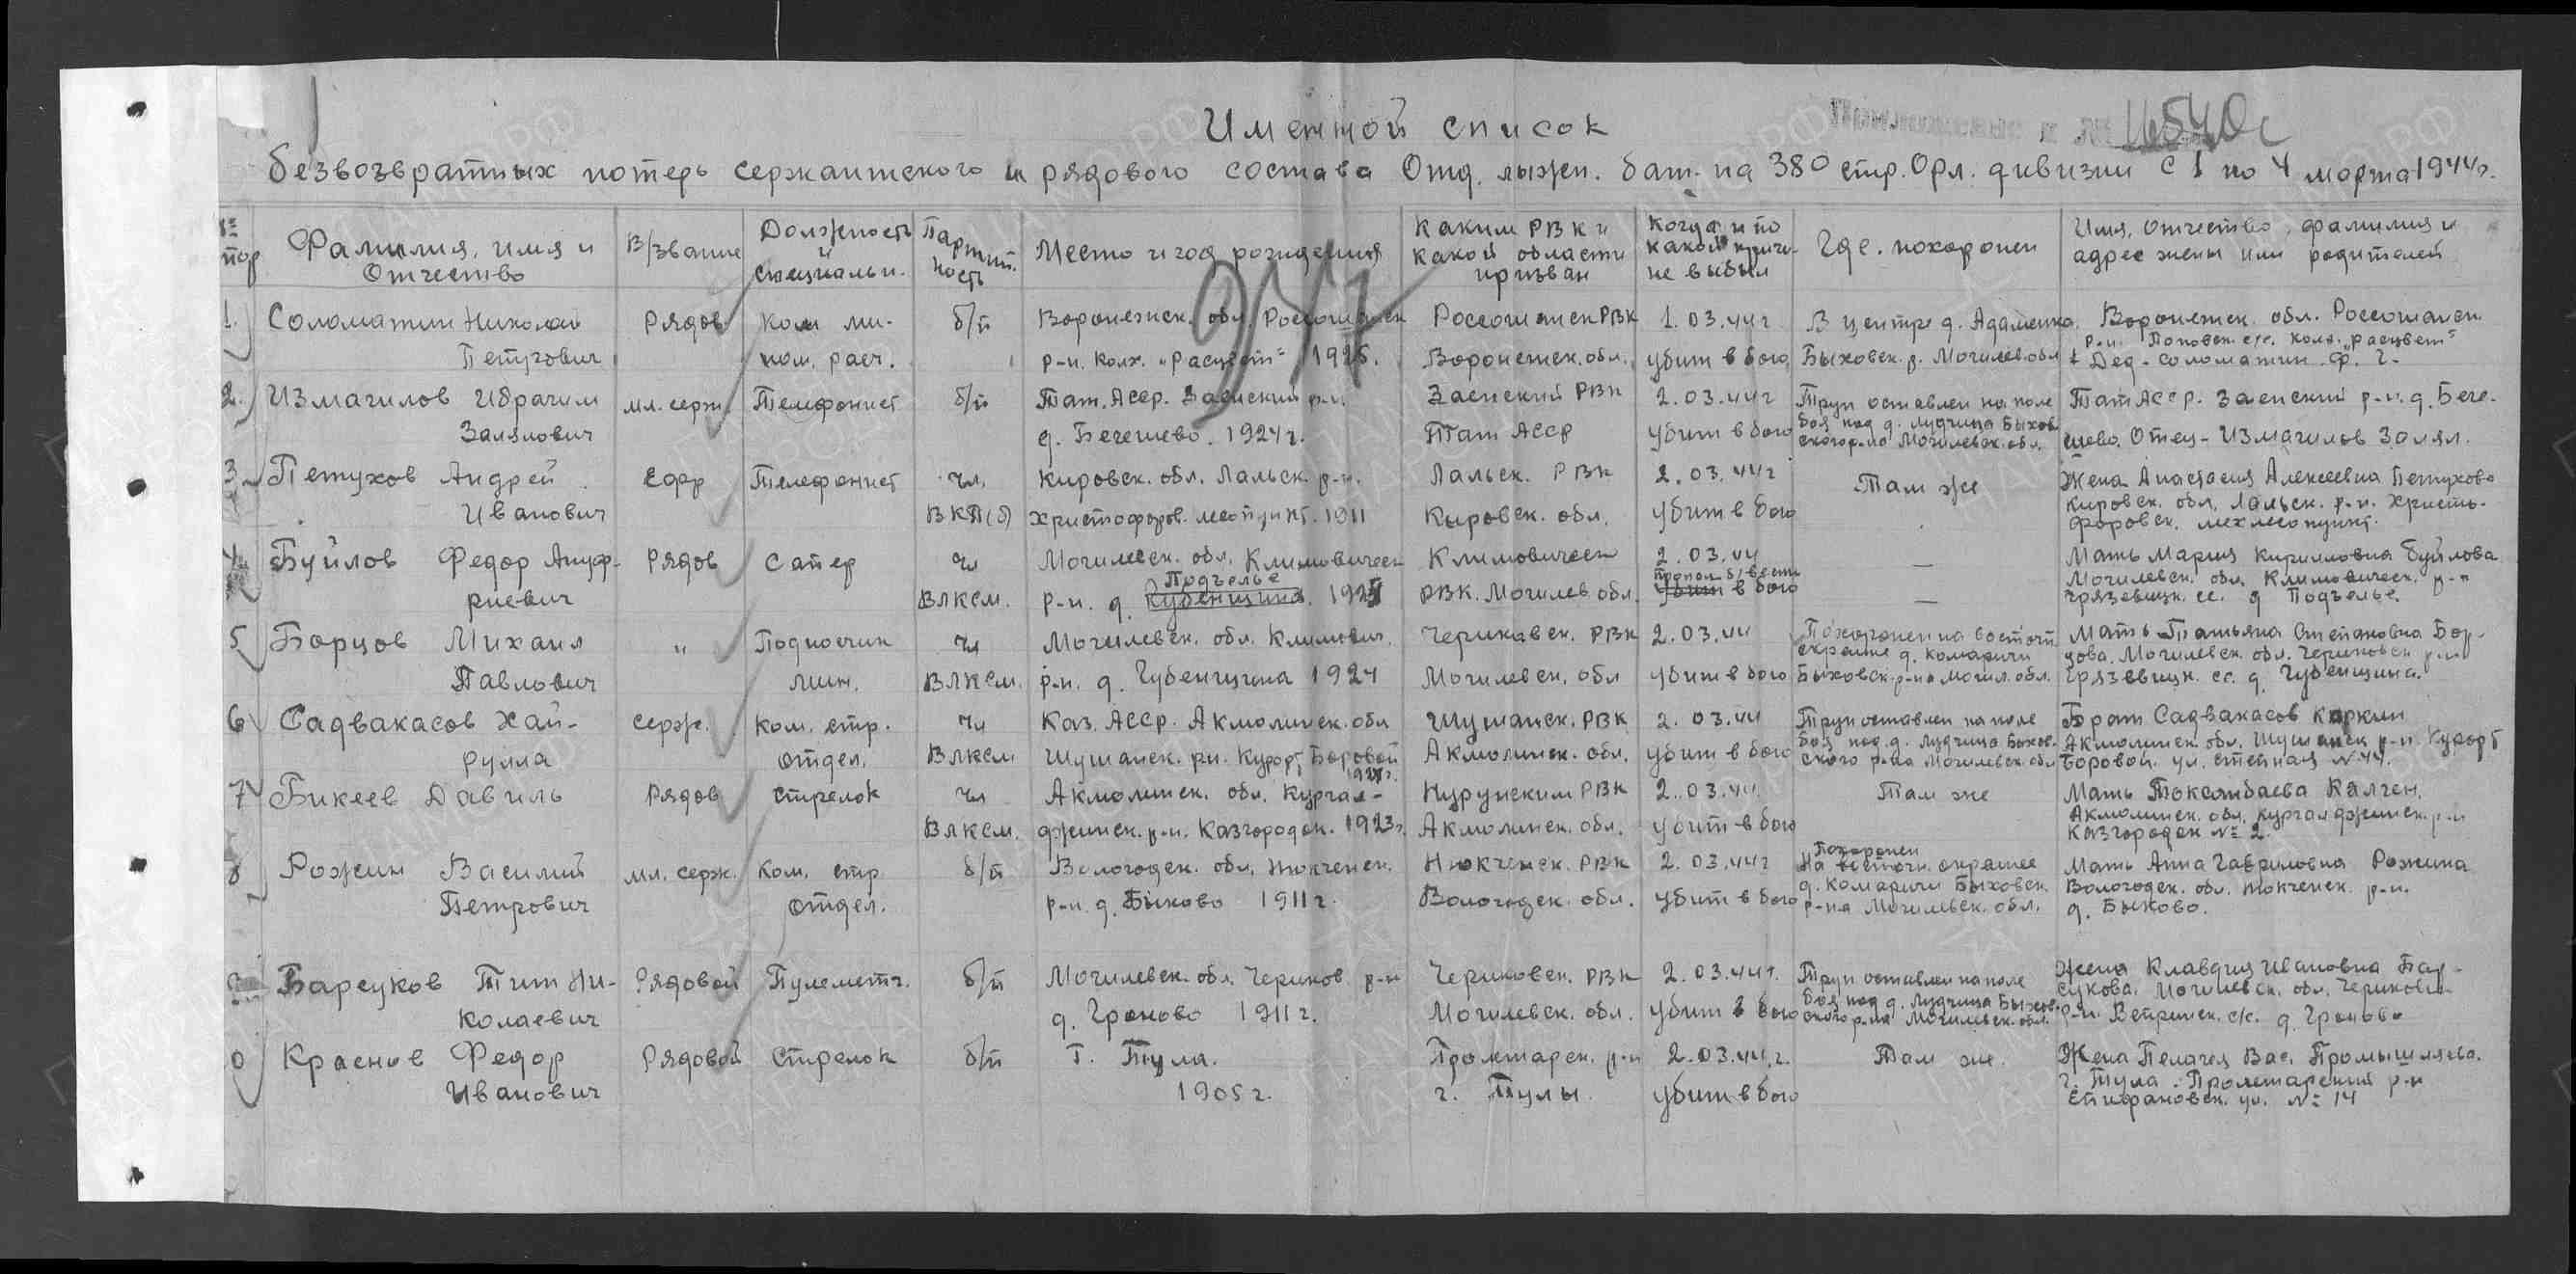 Именной список
16540с
безвозвратных потерь сержантского и рядового состава Отд. лыжн. бат-на 380 стр. Орл. дивизии с 1 по 4 марта 1944г.
№ пор
Фамилия, имя и
Отчество
В/звание
Должность
и
специальн.
Партий-
ность
Место и год рождения
Каким РВК и
какой области
призван
Когда и по
какой причи-
не выбыл
Где похоронен
Имя, Отчество, фамилия и
адрес жены или родителей
1. Соломатин Николай
Петрович
Рядов
Ком ми-
ном. расч.
б/п
Воронежск. обл. Россошанск
р-н. Колх. "Расцвет" 1925.
Россошанск РВК
Воронежск. обл.
1.03.44г
убит в бою
В центре д. Адаменка
Быховск. р. Могилев. обл
Воронежск. обл. Россошанск
р-н. Поповск. с/с. Колх. "расцвет"
Дед - Соломатин Ф. Г.
2. Измагилов Ибрагим
Залялович
мл. серж.
Телефонист
б/п
Тат. Асср. Заенский р-н.
д. Бегешево. 1924г.
Заенский РВК
Тат АССР
2.03.44г
убит в бою
Труп оставлен на поле
боя под д. Лудчица Быхов
ского р-на Могилевск. обл.
Тат АССР. Заенский р-н. д. Беге-
шево. Отец - Измагилов Залял.
3. Петухов Андрей
Иванович
Ефр
Телефонист
чл.
ВКП(б)
Кировск. обл. Лальск. р-н.
Христофоров. лесопункт. 1911
Лальск. РВК
Кировск. обл.
2.03.44г
убит в бою
Там же
Жена Анастасия Алексеевна Петухова
Кировск. обл. Лальск. р-н. Христо-
форовск. мехлесопункт.
4 Буйлов Федор Ануф-
риевич
Рядов
Сапер
чл
ВЛКСМ.
Могилевск. обл. Климовическ
Подъелье
р-н. д. Губенщина. 192
Климовическ
РВК. Могилев. обл.
2.03.44
пропал б/вести
убит в бою
—
—
Мать Мария Кирилловна Буйлова
Могилевск. обл. Климовическ. р-н
Грязевицк. сс. д Подъелье.
5 Борцов Михаил
Павлович
"
Подносчик
мин.
чл
ВЛКСМ.
Могилевск. обл. Климович.
р-н. д. Губенщина 1924
Чериковск. РВК
Могилевск. обл
2.03.44
убит в бою
Похоронен на восточн
окраине д. Комаричи
Быховск. р-на Могил. обл.
Мать Татьяна Степановна Бор-
цова. Могилевск. обл. Чериковск р-н
Грязевицк. сс. д. Губенщина.
6 Садвакасов Хай-
рулла
серж.
Ком. стр.
отдел.
чл
ВЛКСМ
Каз. АССР. Акмолинск. обл
Шушанск. рн. Курорт Боровой
Шушанск. РВК
Акмолинск. обл.
2.03.44
убит в бою
Труп оставлен на поле
боя под д. Лудчица Быхов-
ского р-на Могилевск. обл
Брат Садвакасов Каркин
Акмолинск. обл. Шушанск р-н Курорт
Боровой. ул. Степная №44.
7 Бикеев Давиль
Рядов
стрелок
чл
ВЛКСМ.
Акмолинск. обл. Кургал-
джинск. р-н. Казгородок. 1923г.
РВК
Акмолинск. обл.
2.03.44
убит в бою
Там же
Мать Токамбаева Калген.
Акмолинск. обл. Кургалджинск. р-н
Казгородок № 2.
8 Рожин Василий
Петрович
мл. серж.
Ком. стр
отдел.
б/п
Вологодск. обл. Нюкченск.
р-н. д. Быково 1911г.
Нюкченск. РВК
Вологодск. обл.
2.03.44г
убит в бою
Похоронен
На восточн. окраине
д. Комаричи Быховск.
р-на Могилевск. обл.
Мать Анна Гавриловна Рожина
Вологодск. обл. Нюкченск. р-н.
д. Быково.
Барсуков Тит Ни-
колаевич
Рядовой
Пулеметч.
б/п
Могилевск. обл. Чериков р-н
д. Гроново 1911г.
Чериковск. РВК
Могилевск. обл.
2.03.44г.
убит в бою
Труп оставлен на поле
боя под д. Лудчица Быхов-
ского р-на Могилевск. обл.
Жена Клавдия Ивановна Бар-
сукова. Могилевск. обл. Чериковск
р-н. Ветринск. с/с. д. Гроново
0 Краснов Федор
Иванович
Рядовой
Стрелок
б/п
Г. Тула.
1905г.
Пролетарск. р-н
г. Тулы
2.03.44.г.
убит в бою
Там же.
Жена Пелагея Вас. Промышляева.
г. Тула. Пролетарский р-н
Епифановск. ул. № 14